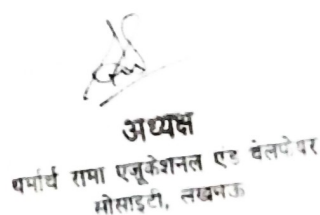 अध्यक्ष
धर्मार्थ रामा एजूकेशनल एण्ड वेलफेयर
सोसाइटी, लखनऊ